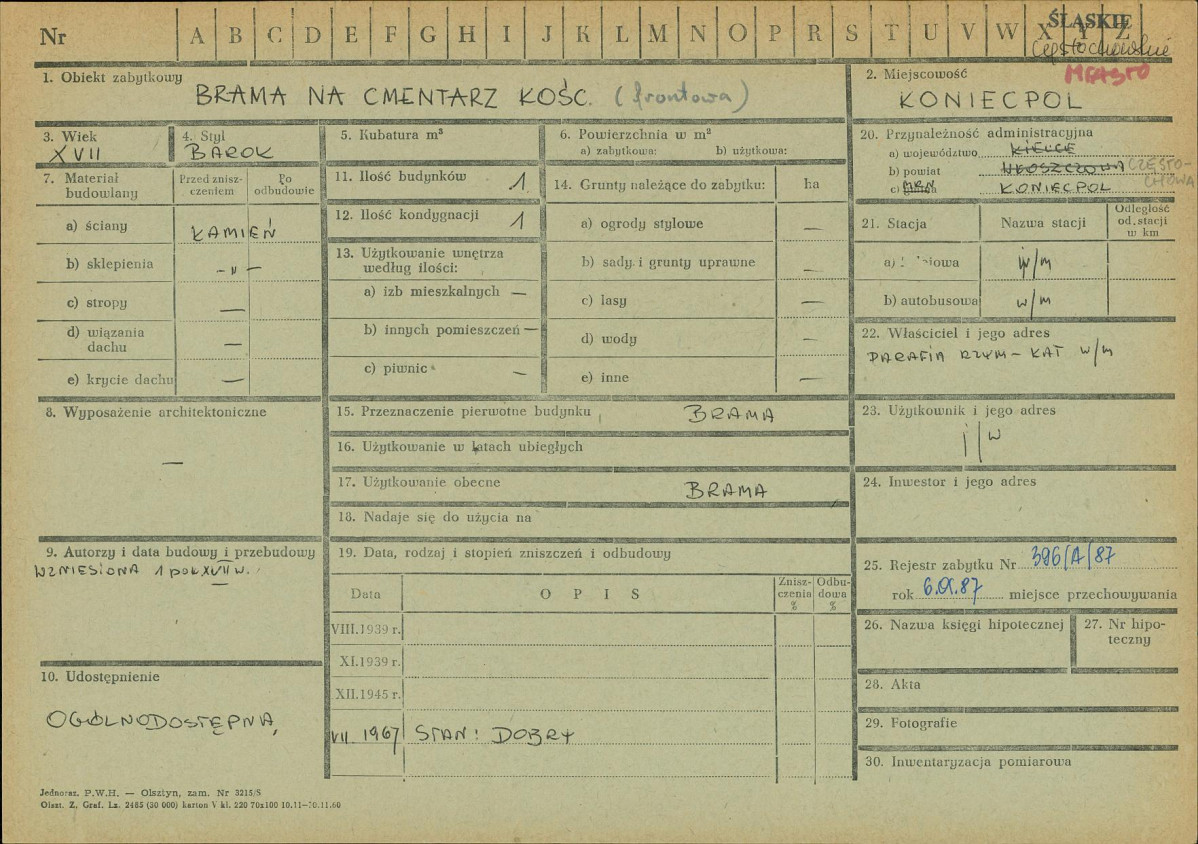 Nr A B C D E F G H I J K L M N O P R S T U V W X Y Z
ŚLĄSKIE
Częstochowskie
MIASTO
1. Obiekt zabytkowy
BRAMA NA CMENTARZ KOŚC. (frontowa)
2. Miejscowość
KONIECPOL
3. Wiek
XVII
4. Styl
BAROK
5. Kubatura m³
6. Powierzchnia w m²
a) zabytkowa: b) użytkowa:
7. Materiał budowlany
Przed znisz-
czeniem
Po
odbudowie
a) ściany KAMIEŃ
b) sklepienia - " -
c) stropy —
d) wiązania
dachu —
e) krycie dachu —
8. Wyposażenie architektoniczne
—
9. Autorzy i data budowy i przebudowy
WZNIESIONA 1 poł. XVII w.
10. Udostępnienie
OGÓLNODOSTĘPNA
11. Ilość budynków 1
12. Ilość kondygnacji 1
13. Użytkowanie wnętrza
według ilości:
a) izb mieszkalnych —
b) innych pomieszczeń —
c) piwnic —
14. Grunty należące do zabytku: ha
a) ogrody stylowe —
b) sady i grunty uprawne —
c) lasy —
d) wody —
e) inne —
15. Przeznaczenie pierwotne budynku BRAMA
16. Użytkowanie w latach ubiegłych
17. Użytkowanie obecne BRAMA
18. Nadaje się do użycia na
19. Data, rodzaj i stopień zniszczeń i odbudowy
Data OPIS
Znisz-
czenia
%
Odbu-
dowa
%
VIII.1939 r.
XI.1939 r.
XII.1945 r.
VII 1967 STAN: DOBRY
20. Przynależność administracyjna
a) województwo KIELCE
b) powiat WŁOSZCZOWA CZĘSTO-
CHOWA
c) MRN KONIECPOL
21. Stacja Nazwa stacji
Odległość
od stacji
w km
a) w/m
b) autobusowa w/m
22. Właściciel i jego adres
PARAFIA RZYM-KAT w/m
23. Użytkownik i jego adres
j/w
24. Inwestor i jego adres
25. Rejestr zabytku Nr 396/A/87
rok 6.IX.87 miejsce przechowywania
26. Nazwa księgi hipotecznej
27. Nr hipo-
teczny
28. Akta
29. Fotografie
30. Inwentaryzacja pomiarowa
Jednoraz. P.W.H. — Olsztyn, zam. Nr 3215/S
Olszt. Z. Graf. Lz. 2485 (30 000) karton V kl. 220 70x100 10.11—30.11.60